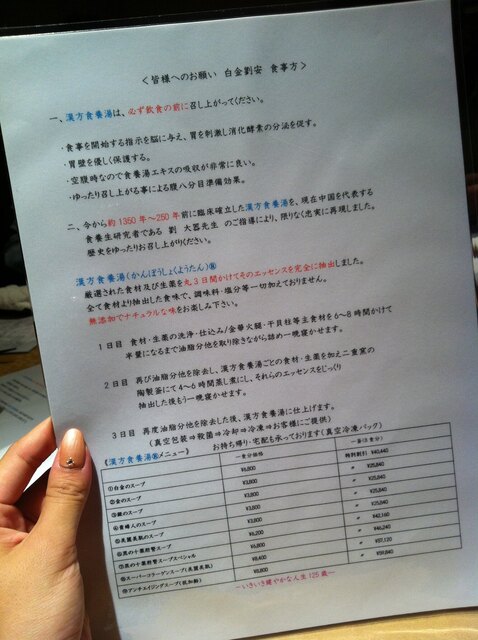 ＜皆様へのお願い　白金劉安　食事方＞
一、漢方食養湯は、必ず飲食の前に召し上がってください。
・食事を開始する指示を脳に与え、胃を刺激し消化酵素の分泌を促す。
・胃壁を優しく保護する。
・空腹時なので食養湯エキスの吸収が非常に良い。
・ゆったり召し上がる事による腹八分目準備効果。
二、今から約1350年～250年前に臨床確立した漢方食養湯を、現在中国を代表する
食養生研究者である　劉　大器先生　のご指導により、限りなく忠実に再現しました。
歴史をゆったりお召し上がりください。
漢方食養湯(かんぽうしょくようたん)®
厳選された食材及び生薬を丸3日間かけてそのエッセンスを完全に抽出しました。
全て食材より抽出した食味で、調味料・塩分等一切加えておりません。
無添加でナチュラルな味をお楽しみ下さい。
1日目　食材・生薬の洗浄・仕込み/金華火腿・干貝柱等主食材を6～8時間かけて
半量になるまで油脂分他を取り除きながら詰め一晩寝かせます。
2日目　再び油脂分他を除去し、漢方食養湯ごとの食材・生薬を加え二重窯の
陶製釜にて4～6時間蒸し煮にし、それらのエッセンスをじっくり
抽出した後もう一晩寝かせます。
3日目　再度油脂分他を除去した後、漢方食養湯に仕上げます。
(真空包装⇒殺菌⇒冷却⇒冷凍⇒お客様にご提供)
《漢方食養湯®メニュー》　お持ち帰り・宅配も承っております(真空冷凍パック)
一食分価格　一喜(七食分)
①白金のスープ　¥6,800　特別割引　¥40,440
②金のスープ　¥3,800　〃　¥25,840
③銀のスープ　¥3,800　〃　¥25,840
④貴婦人のスープ　¥3,800　〃　¥25,840
⑤美麗美肌のスープ　¥6,200　〃　¥42,160
¥6,800　〃　¥46,240
¥8,400　〃　¥57,120
スーパーコラーゲンスープ(美麗美肌)　¥8,800　〃　¥59,840
アンチエイジングスープ
―いきいき健やかな人生125歳―